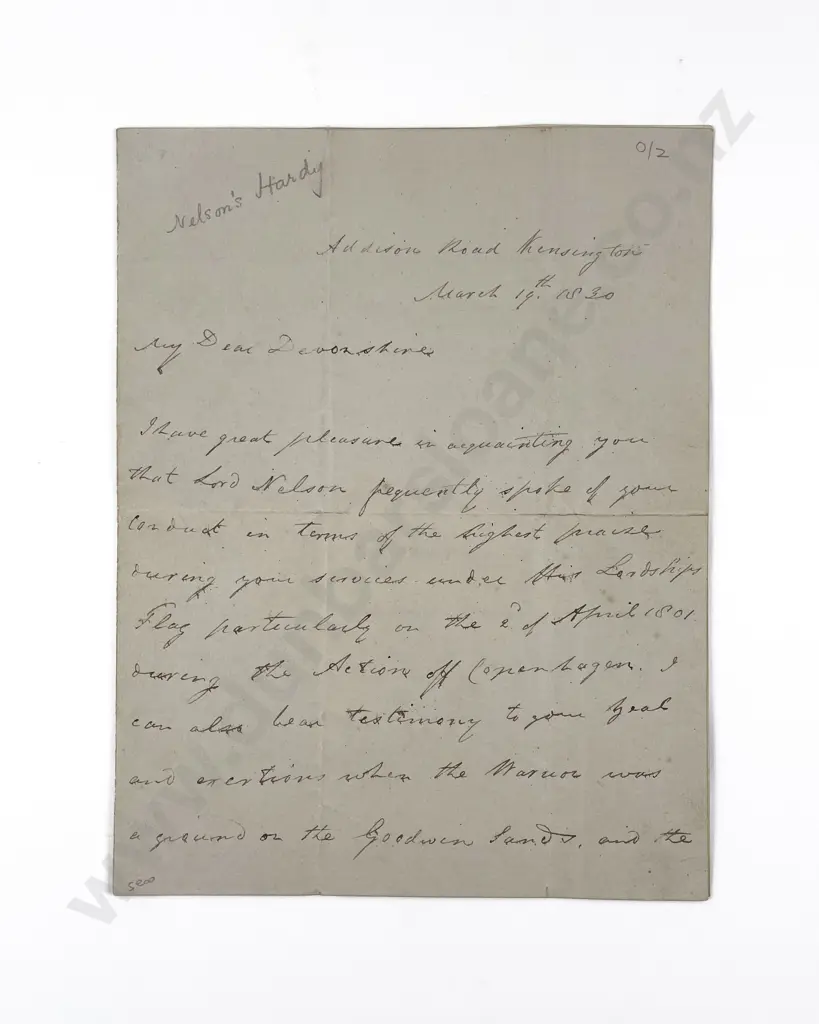 Nelson's Hardy
0/2
Addison Road Kensington
March 19th 1830
My Dear Devonshire
I have great pleasure in acquainting you
that Lord Nelson frequently spoke of your
conduct in terms of the highest praise
during your services under His Lordships
Flag particularly on the 2d of April 1801.
during the Action off Copenhagen. I
can also bear testimony to your Zeal
and exertions when the Warrior was
a ground on the Goodwin Sands, and the
www.dunbarsloane.co.nz